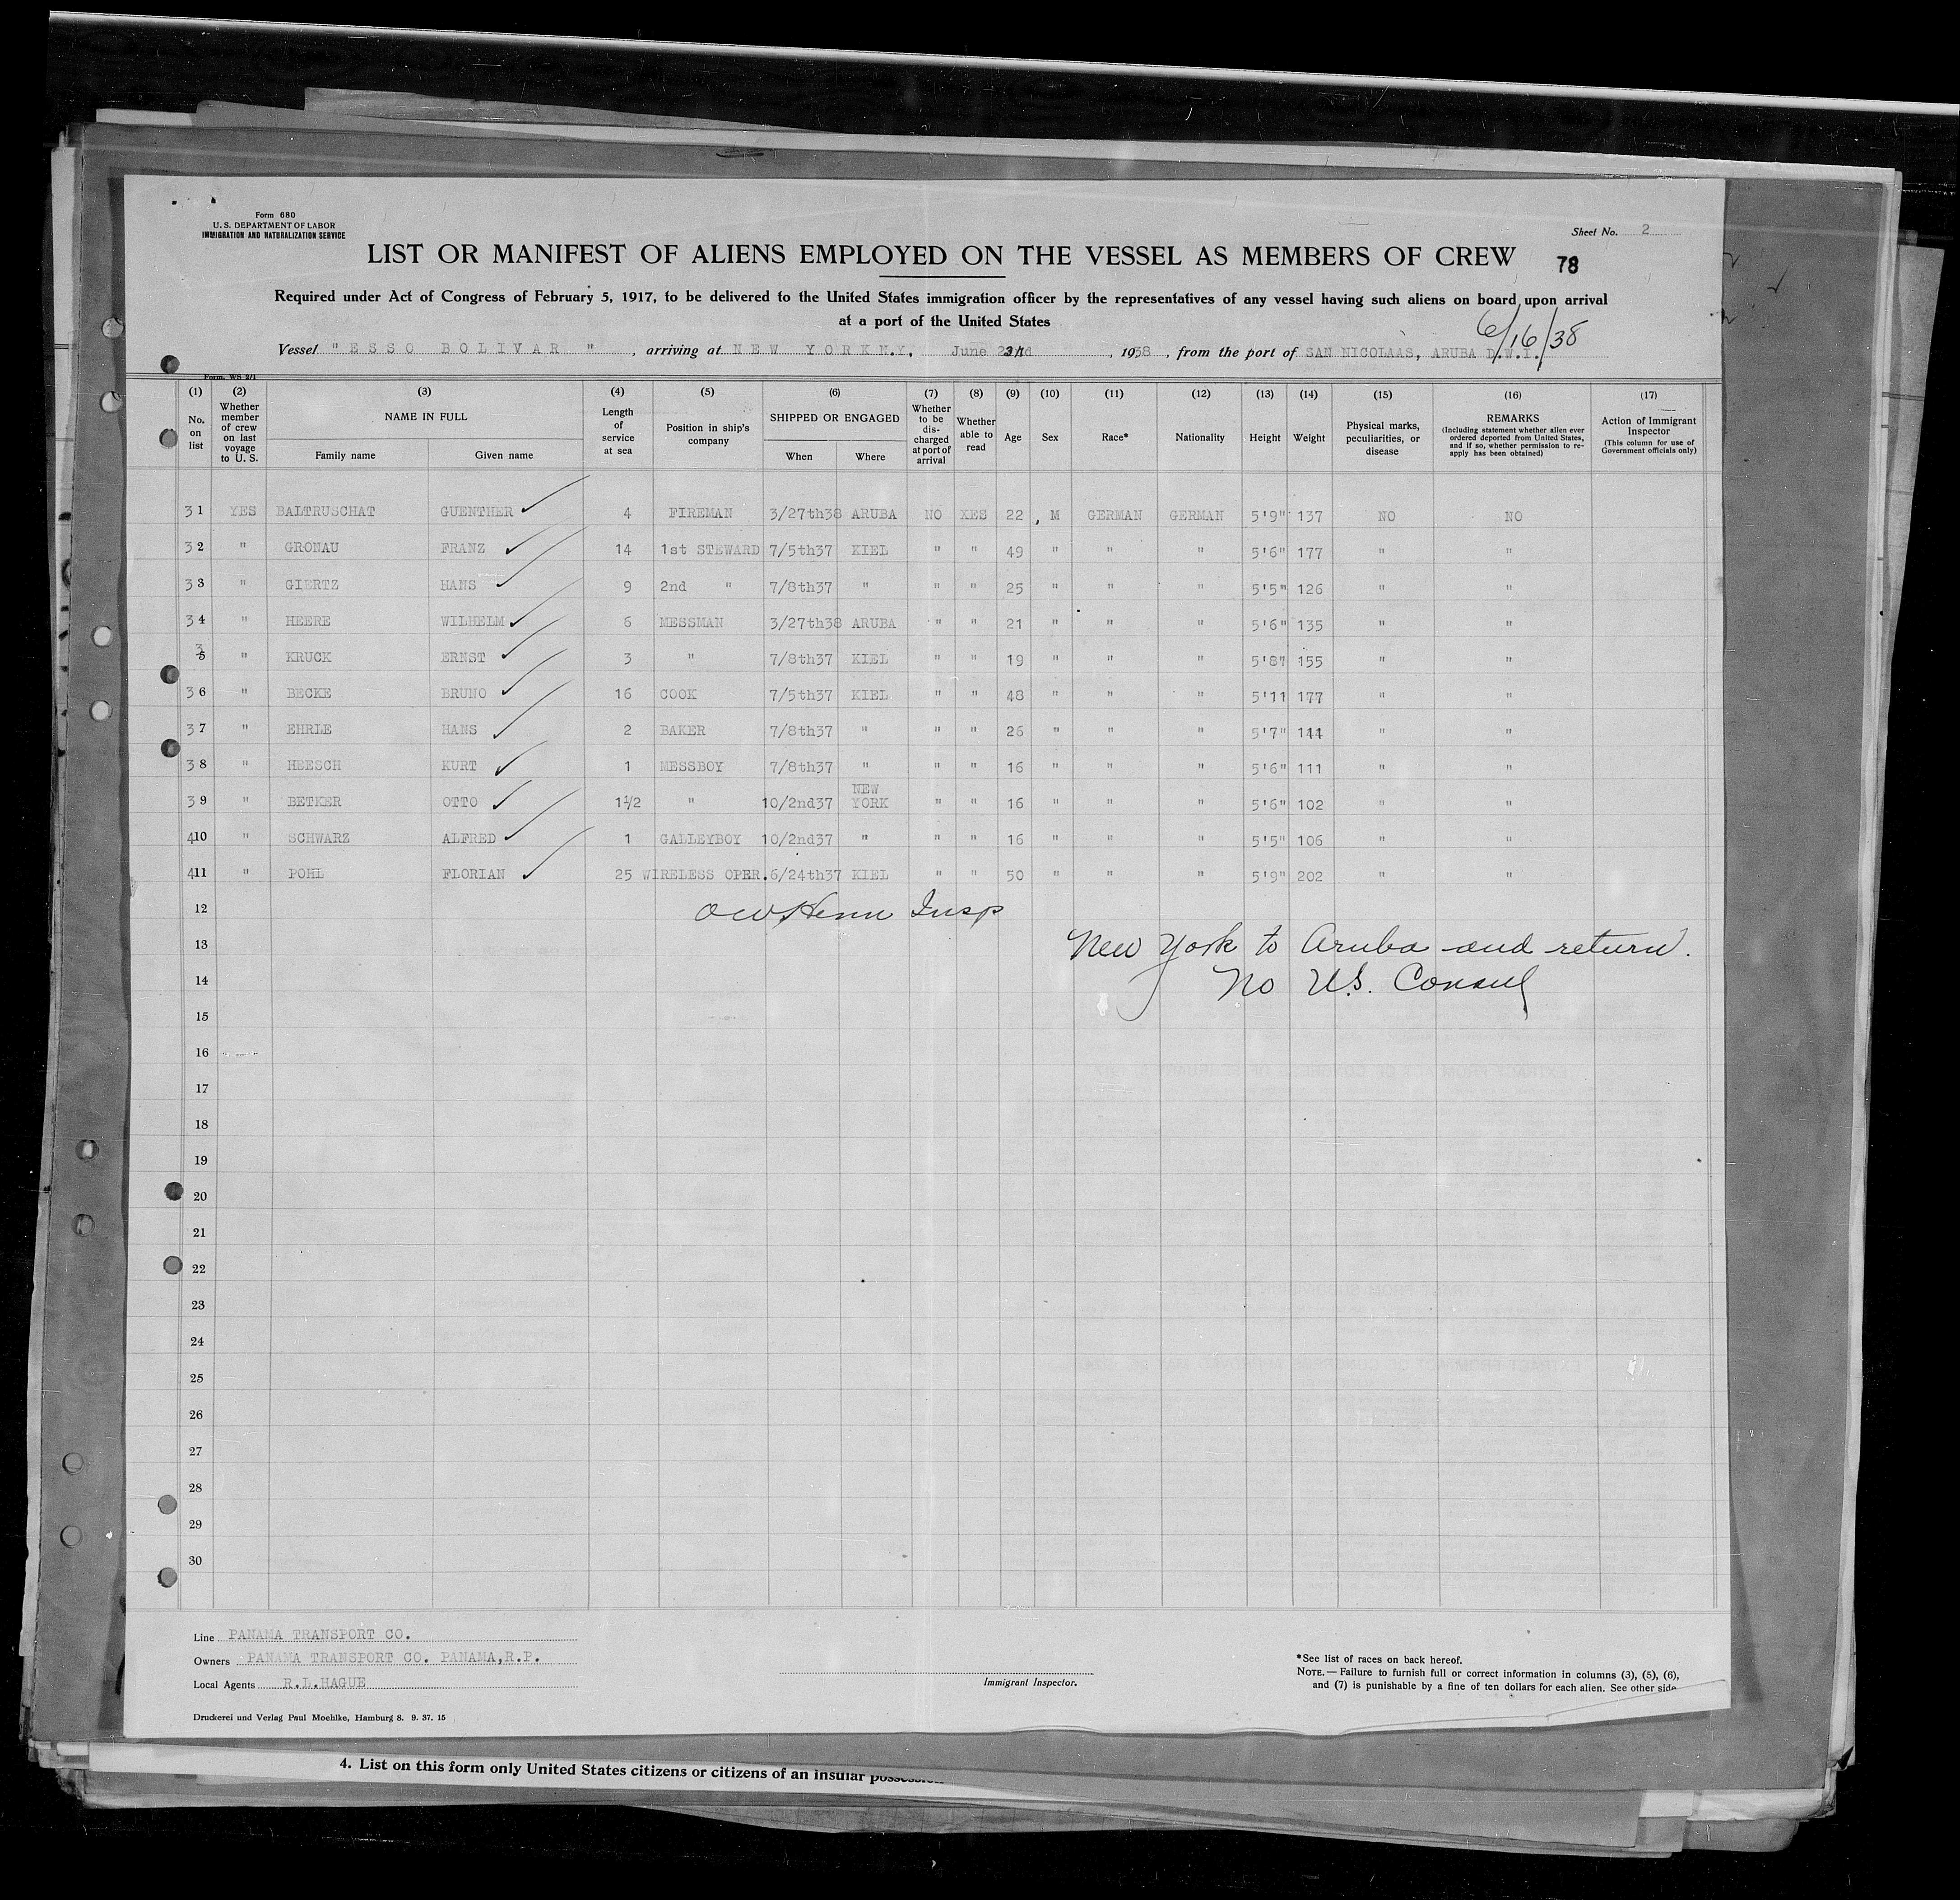 Form 680
U. S. DEPARTMENT OF LABOR
IMMIGRATION AND NATURALIZATION SERVICE
Sheet No. 2
LIST OR MANIFEST OF ALIENS EMPLOYED ON THE VESSEL AS MEMBERS OF CREW
78
Required under Act of Congress of February 5, 1917, to be delivered to the United States immigration officer by the representatives of any vessel having such aliens on board upon arrival
at a port of the United States
6/16/38
Vessel " ESSO BOLIVAR ", arriving at NEW YORK N.Y. June , 1938, from the port of SAN NICOLAAS, ARUBA D.W.I.
Form. WS 2/1
(1) (2) (3) (4) (5) (6) (7) (8) (9) (10) (11) (12) (13) (14) (15) (16) (17)
No. on list
Whether member of crew on last voyage to U. S.
NAME IN FULL
Family name
Given name
Length of service at sea
Position in ship's company
SHIPPED OR ENGAGED
When
Where
Whether to be discharged at port of arrival
Whether able to read
Age
Sex
Race*
Nationality
Height
Weight
Physical marks, peculiarities, or disease
REMARKS
(Including statement whether alien ever ordered deported from United States, and if so, whether permission to reapply has been obtained)
Action of Immigrant Inspector
(This column for use of Government officials only)
31 YES BALTRUSCHAT GUENTHER 4 FIREMAN 3/27th38 ARUBA NO XES 22 , M GERMAN GERMAN 5'9" 137 NO NO
32 " GRONAU FRANZ 14 1st STEWARD 7/5th37 KIEL " " 49 " " " 5'6" 177 " "
33 " GIERTZ HANS 9 2nd " 7/8th37 " " " 25 " " " 5'5" 126 " "
34 " HEERE WILHELM 6 MESSMAN 3/27th38 ARUBA " " 21 " " " 5'6" 135 " "
35 " KRUCK ERNST 3 " 7/8th37 KIEL " " 19 " " " 5'8" 155 " "
36 " BECKE BRUNO 16 COOK 7/5th37 KIEL " " 48 " " " 5'11 177 " "
37 " EHRLE HANS 2 BAKER 7/8th37 " " " 26 " " " 5'7" 144 " "
38 " HEESCH KURT 1 MESSBOY 7/8th37 " " " 16 " " " 5'6" 111 " "
39 " BETKER OTTO 1½ " 10/2nd37 NEW YORK " " 16 " " " 5'6" 102 " "
410 " SCHWARZ ALFRED 1 GALLEYBOY 10/2nd37 " " " 16 " " " 5'5" 106 " "
411 " POHL FLORIAN 25 WIRELESS OPER. 6/24th37 KIEL " " 50 " " " 5'9" 202 " "
12 Insp
13 New York to Aruba and return.
14 No U.S. Consul
15
16
17
18
19
20
21
22
23
24
25
26
27
28
29
30
Line PANAMA TRANSPORT CO.
Owners PANAMA TRANSPORT CO. PANAMA,R.P.
Local Agents R.L.HAGUE
Immigrant Inspector.
*See list of races on back hereof.
NOTE.—Failure to furnish full or correct information in columns (3), (5), (6),
and (7) is punishable by a fine of ten dollars for each alien. See other side
Druckerei und Verlag Paul Moehlke, Hamburg 8. 9. 37. 15
4. List on this form only United States citizens or citizens of an insular